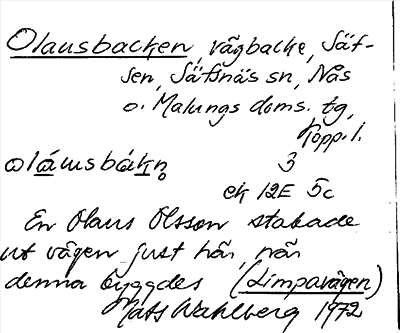 Olausbacken, vägbacke, Säf-
sen, Säfsnäs sn, Nås
o. Malungs doms. tg,
Kopp. l.
oláusbákn̥ 3
ek 12E 5c
En Olaus Olsson stakade
ut vägen just här, när
denna byggdes (Limpavägen)
Mats Wahlberg 1972